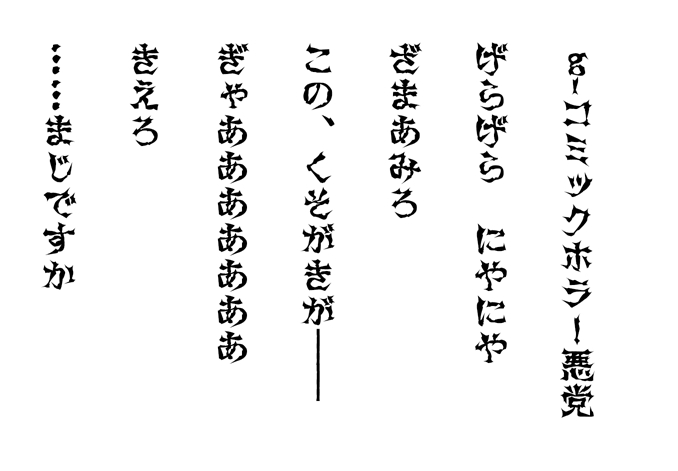 g-コミックホラー悪党
げらげら　にやにや
ざまあみろ
この、くそがきが――
ぎゃあああああああ
きえろ
……まじですか